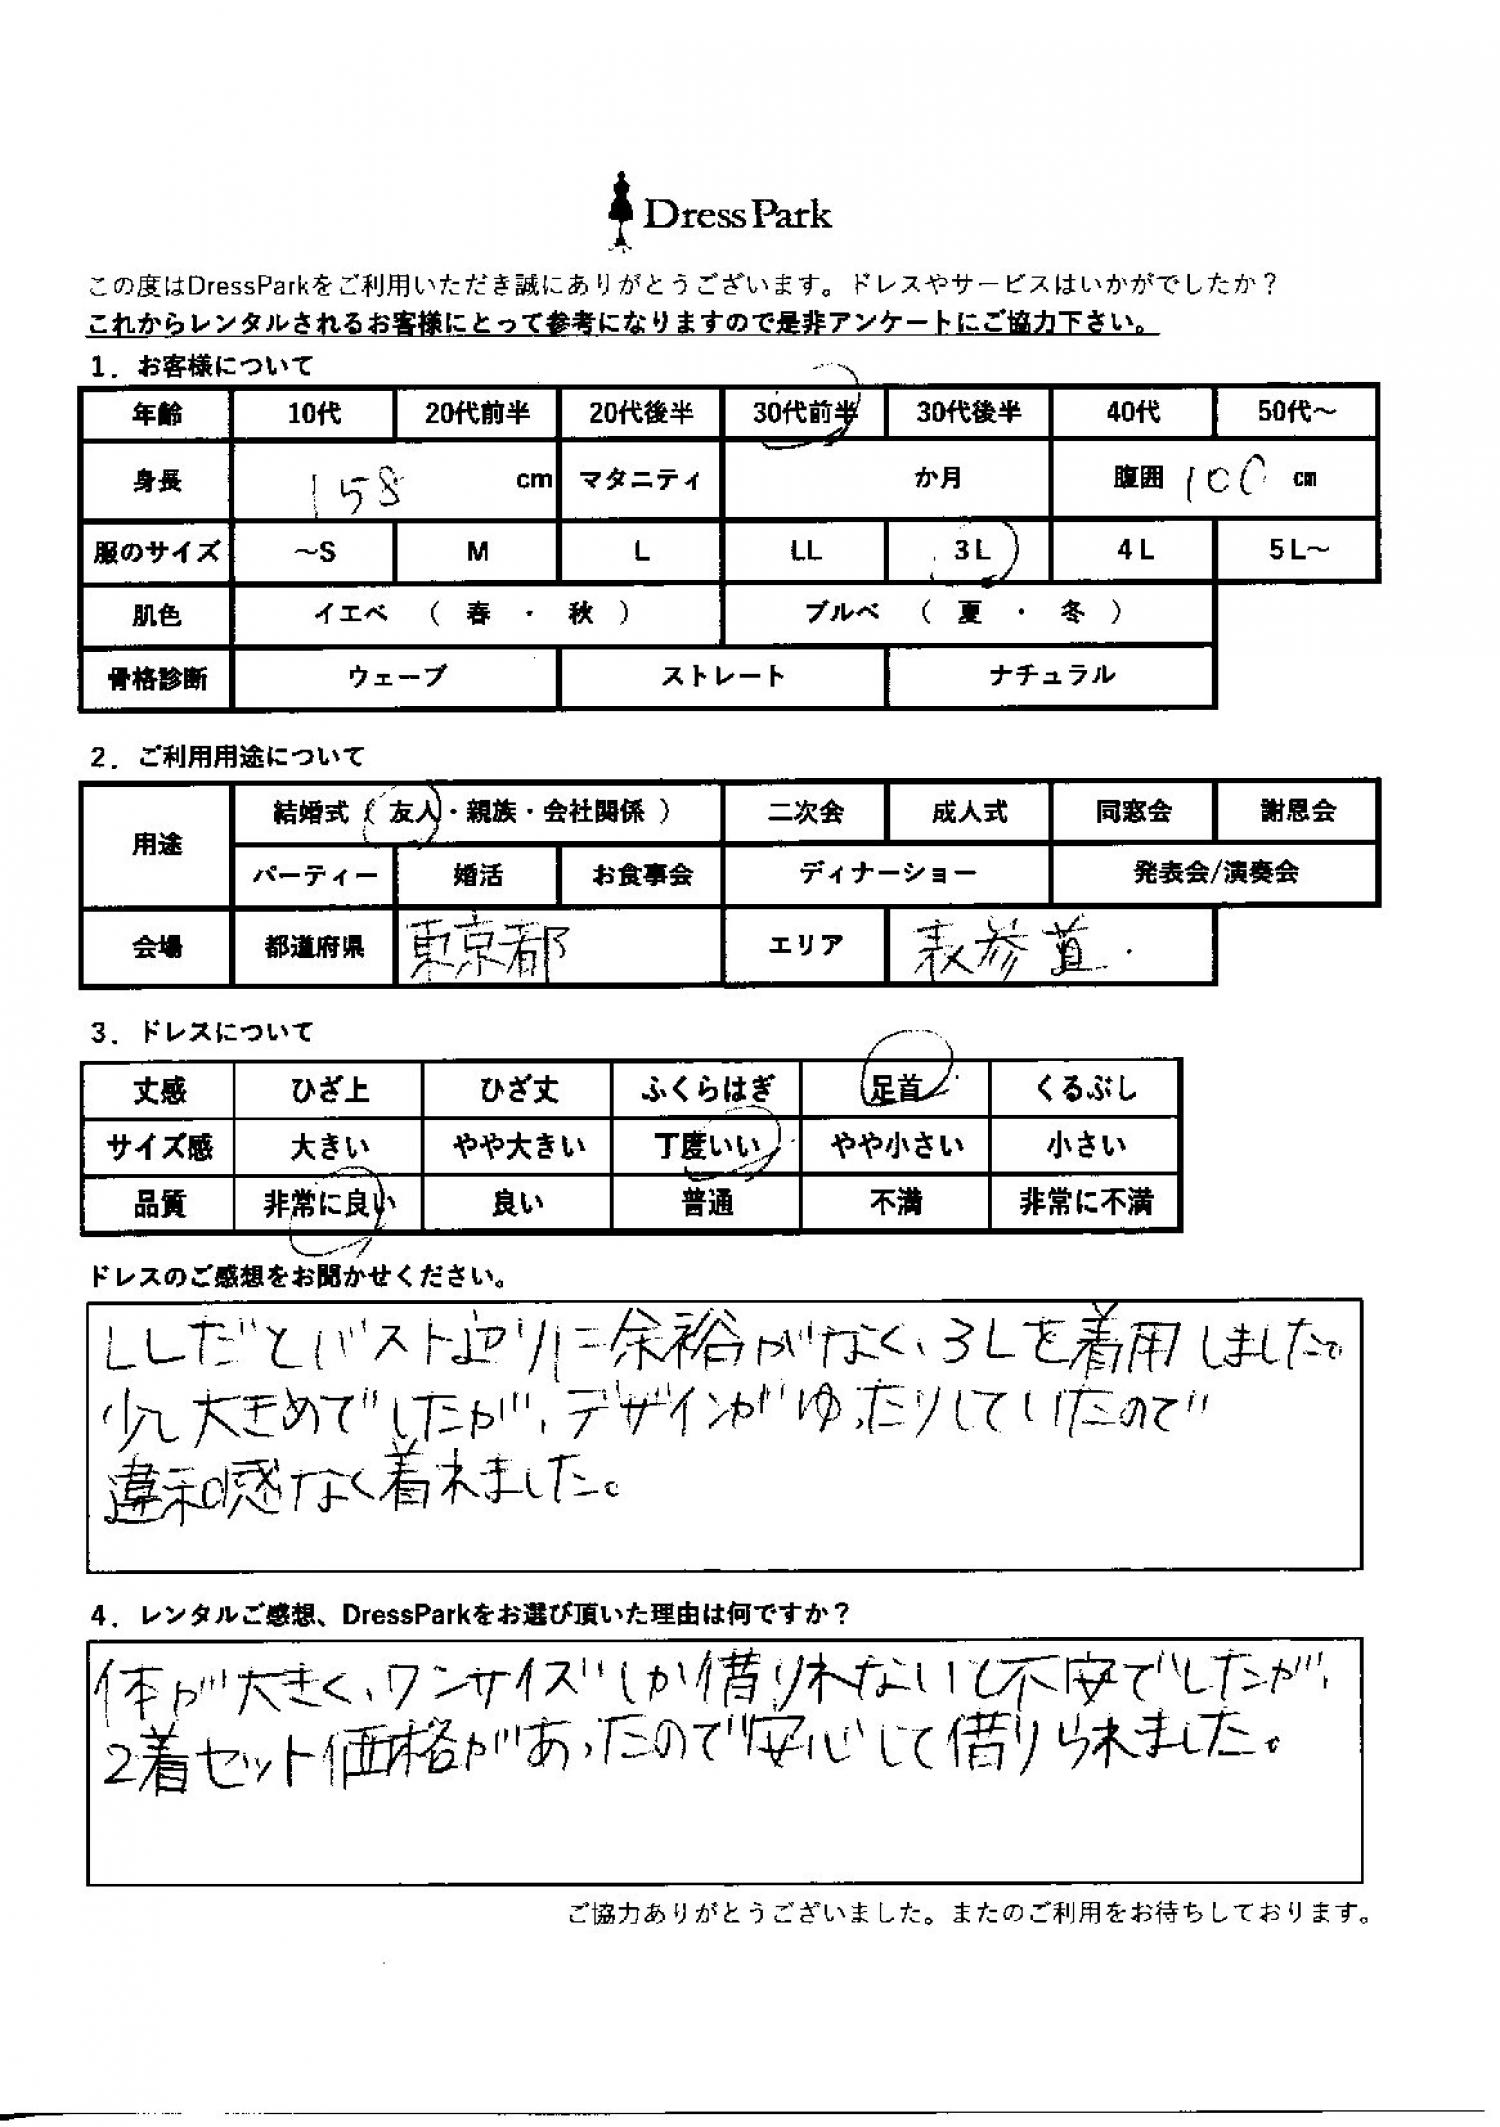 Dress Park
この度はDressParkをご利用いただき誠にありがとうございます。ドレスやサービスはいかがでしたか？
これからレンタルされるお客様にとって参考になりますので是非アンケートにご協力下さい。
1．お客様について
年齢 10代 20代前半 20代後半 30代前半 30代後半 40代 50代～
身長 158 cm マタニティ か月 腹囲 100 cm
服のサイズ ～S M L LL 3L 4L 5L～
肌色 イエベ （ 春 ・ 秋 ） ブルベ （ 夏 ・ 冬 ）
骨格診断 ウェーブ ストレート ナチュラル
2．ご利用用途について
用途 結婚式（ 友人・親族・会社関係 ） 二次会 成人式 同窓会 謝恩会
パーティー 婚活 お食事会 ディナーショー 発表会/演奏会
会場 都道府県 東京都 エリア 表参道
3．ドレスについて
丈感 ひざ上 ひざ丈 ふくらはぎ 足首 くるぶし
サイズ感 大きい やや大きい 丁度いい やや小さい 小さい
品質 非常に良い 良い 普通 不満 非常に不満
ドレスのご感想をお聞かせください。
LLだとバスト辺りに余裕がなく、3Lを着用しました。
少し大きめでしたが、デザインがゆったりしていたので
違和感なく着れました。
4．レンタルご感想、DressParkをお選び頂いた理由は何ですか？
体が大きく、ワンサイズしか借りれないと不安でしたが、
2着セット価格があったので安心して借りられました。
ご協力ありがとうございました。またのご利用をお待ちしております。